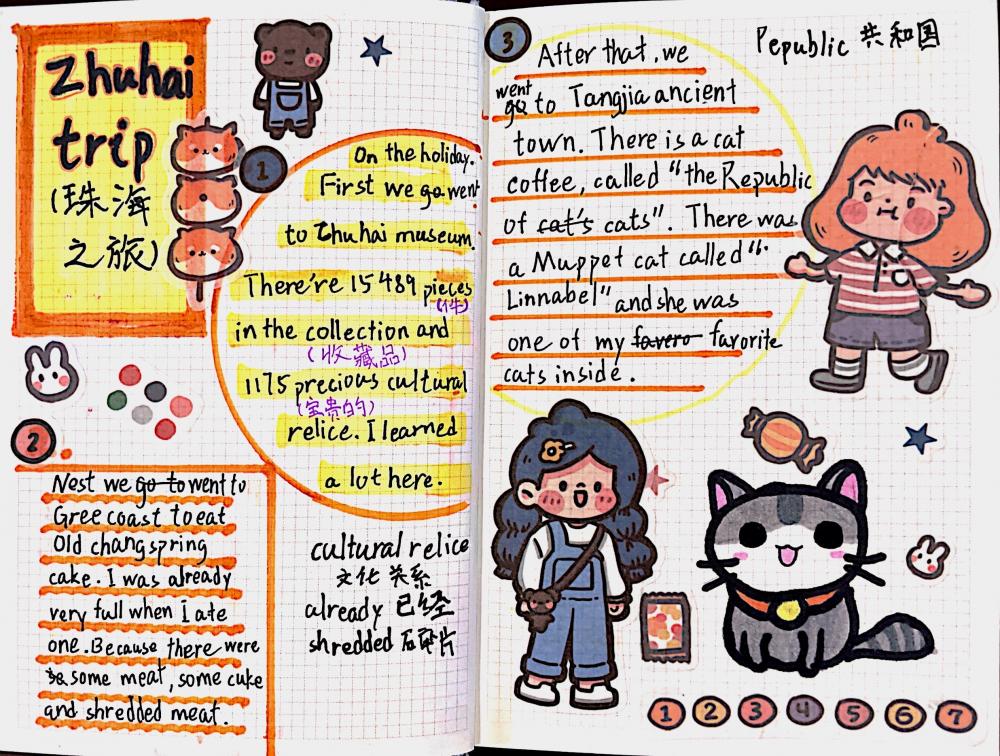 Zhuhai
trip
(珠海
之旅)
1
On the holiday.
First we go went
to Zhuhai museum.
There're 15489 pieces
(件)
in the collection and
(收藏品)
1175 precious cultural
(宝贵的)
relice. I learned
a lot here.
2
Nest we go to went to
Gree coast to eat
Old changspring
cake. I was already
very full when i ate
one. Because there were
some meat, some cuke
and shredded meat.
cultural relice
文化关系
already 已经
shredded 碎片
3
After that, we
went
go to Tangjia ancient
town. There is a cat
coffee, called "the Republic
of cat's cats". There was
a Muppet cat called "
Linnabel" and she was
one of my favero favorite
cats inside.
Pepublic 共和国
1 2 3 4 5 6 7